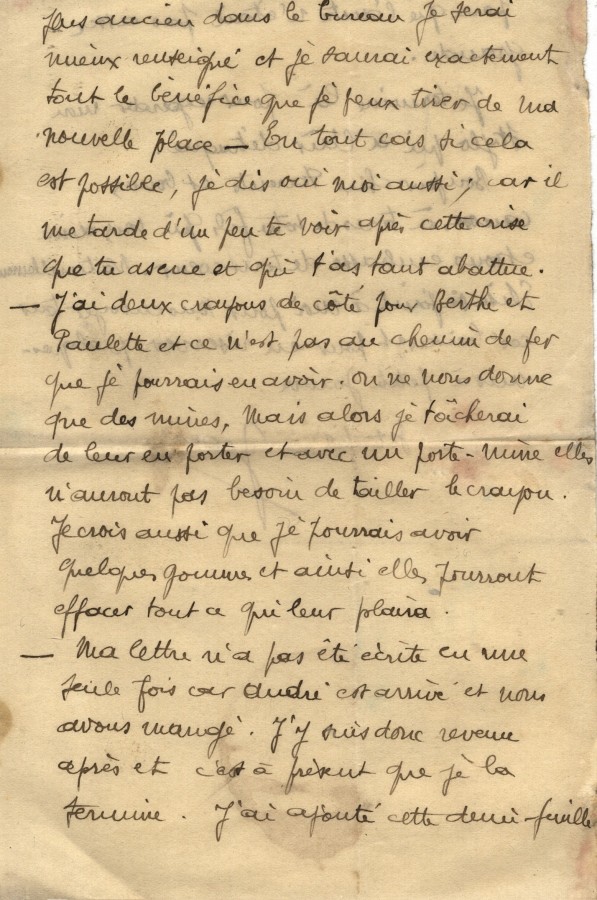 plus ancien dans le bureau je serai
mieux renseigné et je saurai exactement
tout le bénéfice que je peux tirer de ma
nouvelle place — En tout cas si cela
est possible, je dis oui moi aussi, car il
me tarde d'un peu te voir après cette crise
que tu as eue et qui t'as tant abattue.
— J'ai deux crayons de côté pour Berthe et
Paulette et ce n'est pas au chemin de fer
que je pourrais en avoir. on ne nous donne
que des mines, Mais alors je tâcherai
de leur en porter et avec un porte-mine elles
n'auront pas besoin de tailler le crayon.
Je crois aussi que je pourrais avoir
quelques gommes et ainsi elles pourront
effacer tout ce qui leur plaira.
— Ma lettre n'a pas été écrite en une
seule fois car André est arrivé et nous
avons mangé. J'y suis donc revenu
après et c'est à présent que je la
termine. J'ai ajouté cette demi-feuille